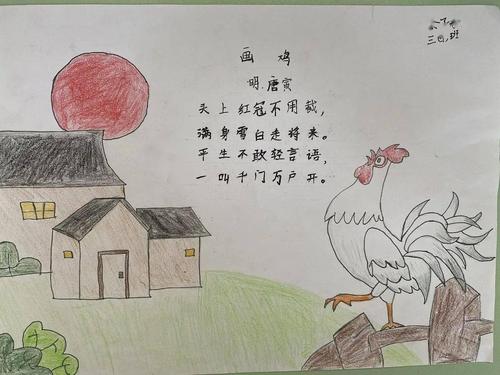 三四班
画鸡
明.唐寅
头上红冠不用裁，
满身雪白走将来。
平生不敢轻言语，
一叫千门万户开。